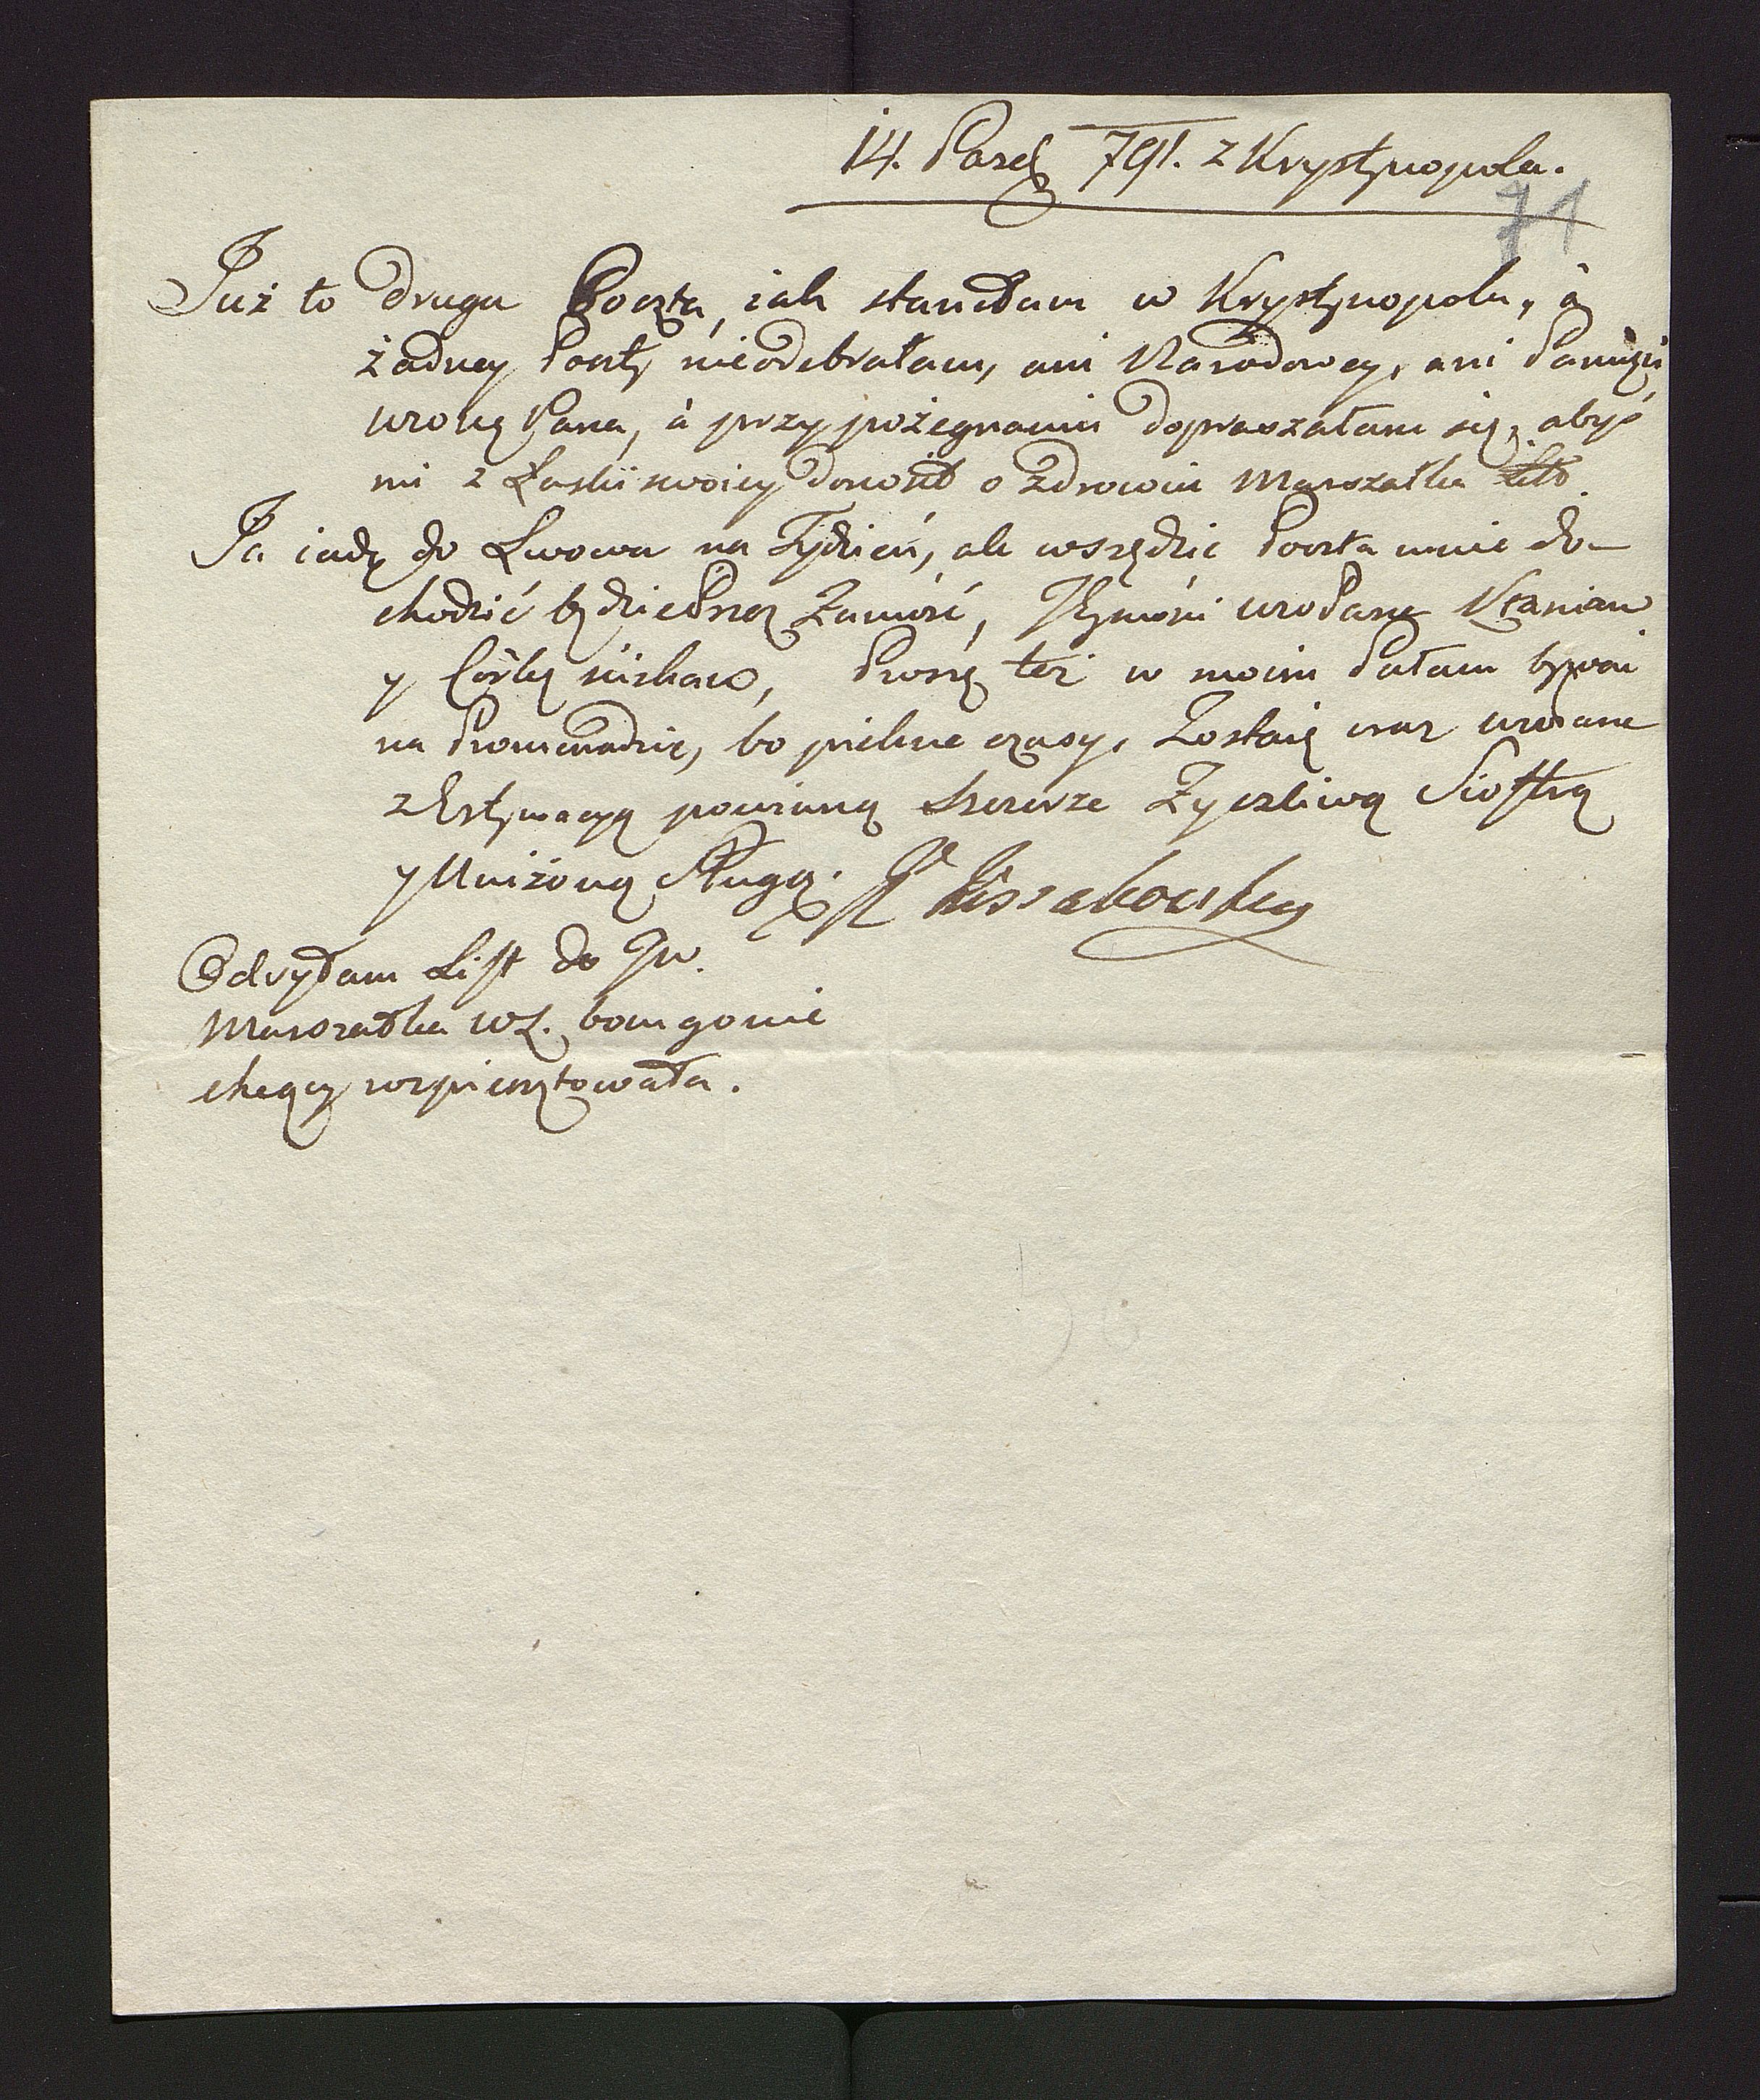 14. Paźdz 791. z Krystynopola.
71
Już to druga Poczta, iak stanełam w Krystynopolu, á
żadney Poczty nieodebrałam, ani Narodowey, ani
Pana, á przy pożegnaniu dopraszałam się, abyś
mi z Łaski swoiey donosił o zdrowiu Marszałka
Ja iadę do Lwowa na Tydzień, ale wszędzie Poczta mnie do-
chodzić będzie Przez Zamość, Jeymości Kłaniam
y Córkę ściskam, Proszę też w moim Pałacu bywać
na Promenadzie, bo piękne czasy, Zostaię oraz
z Estymacyą powinną szczerze Zyczliwą Siostrą
y Uniżoną Sługą. Kossakowska
Odesłałam List do JW.
Marszałka WL. bom go nie
chcący rozpieczętowała.